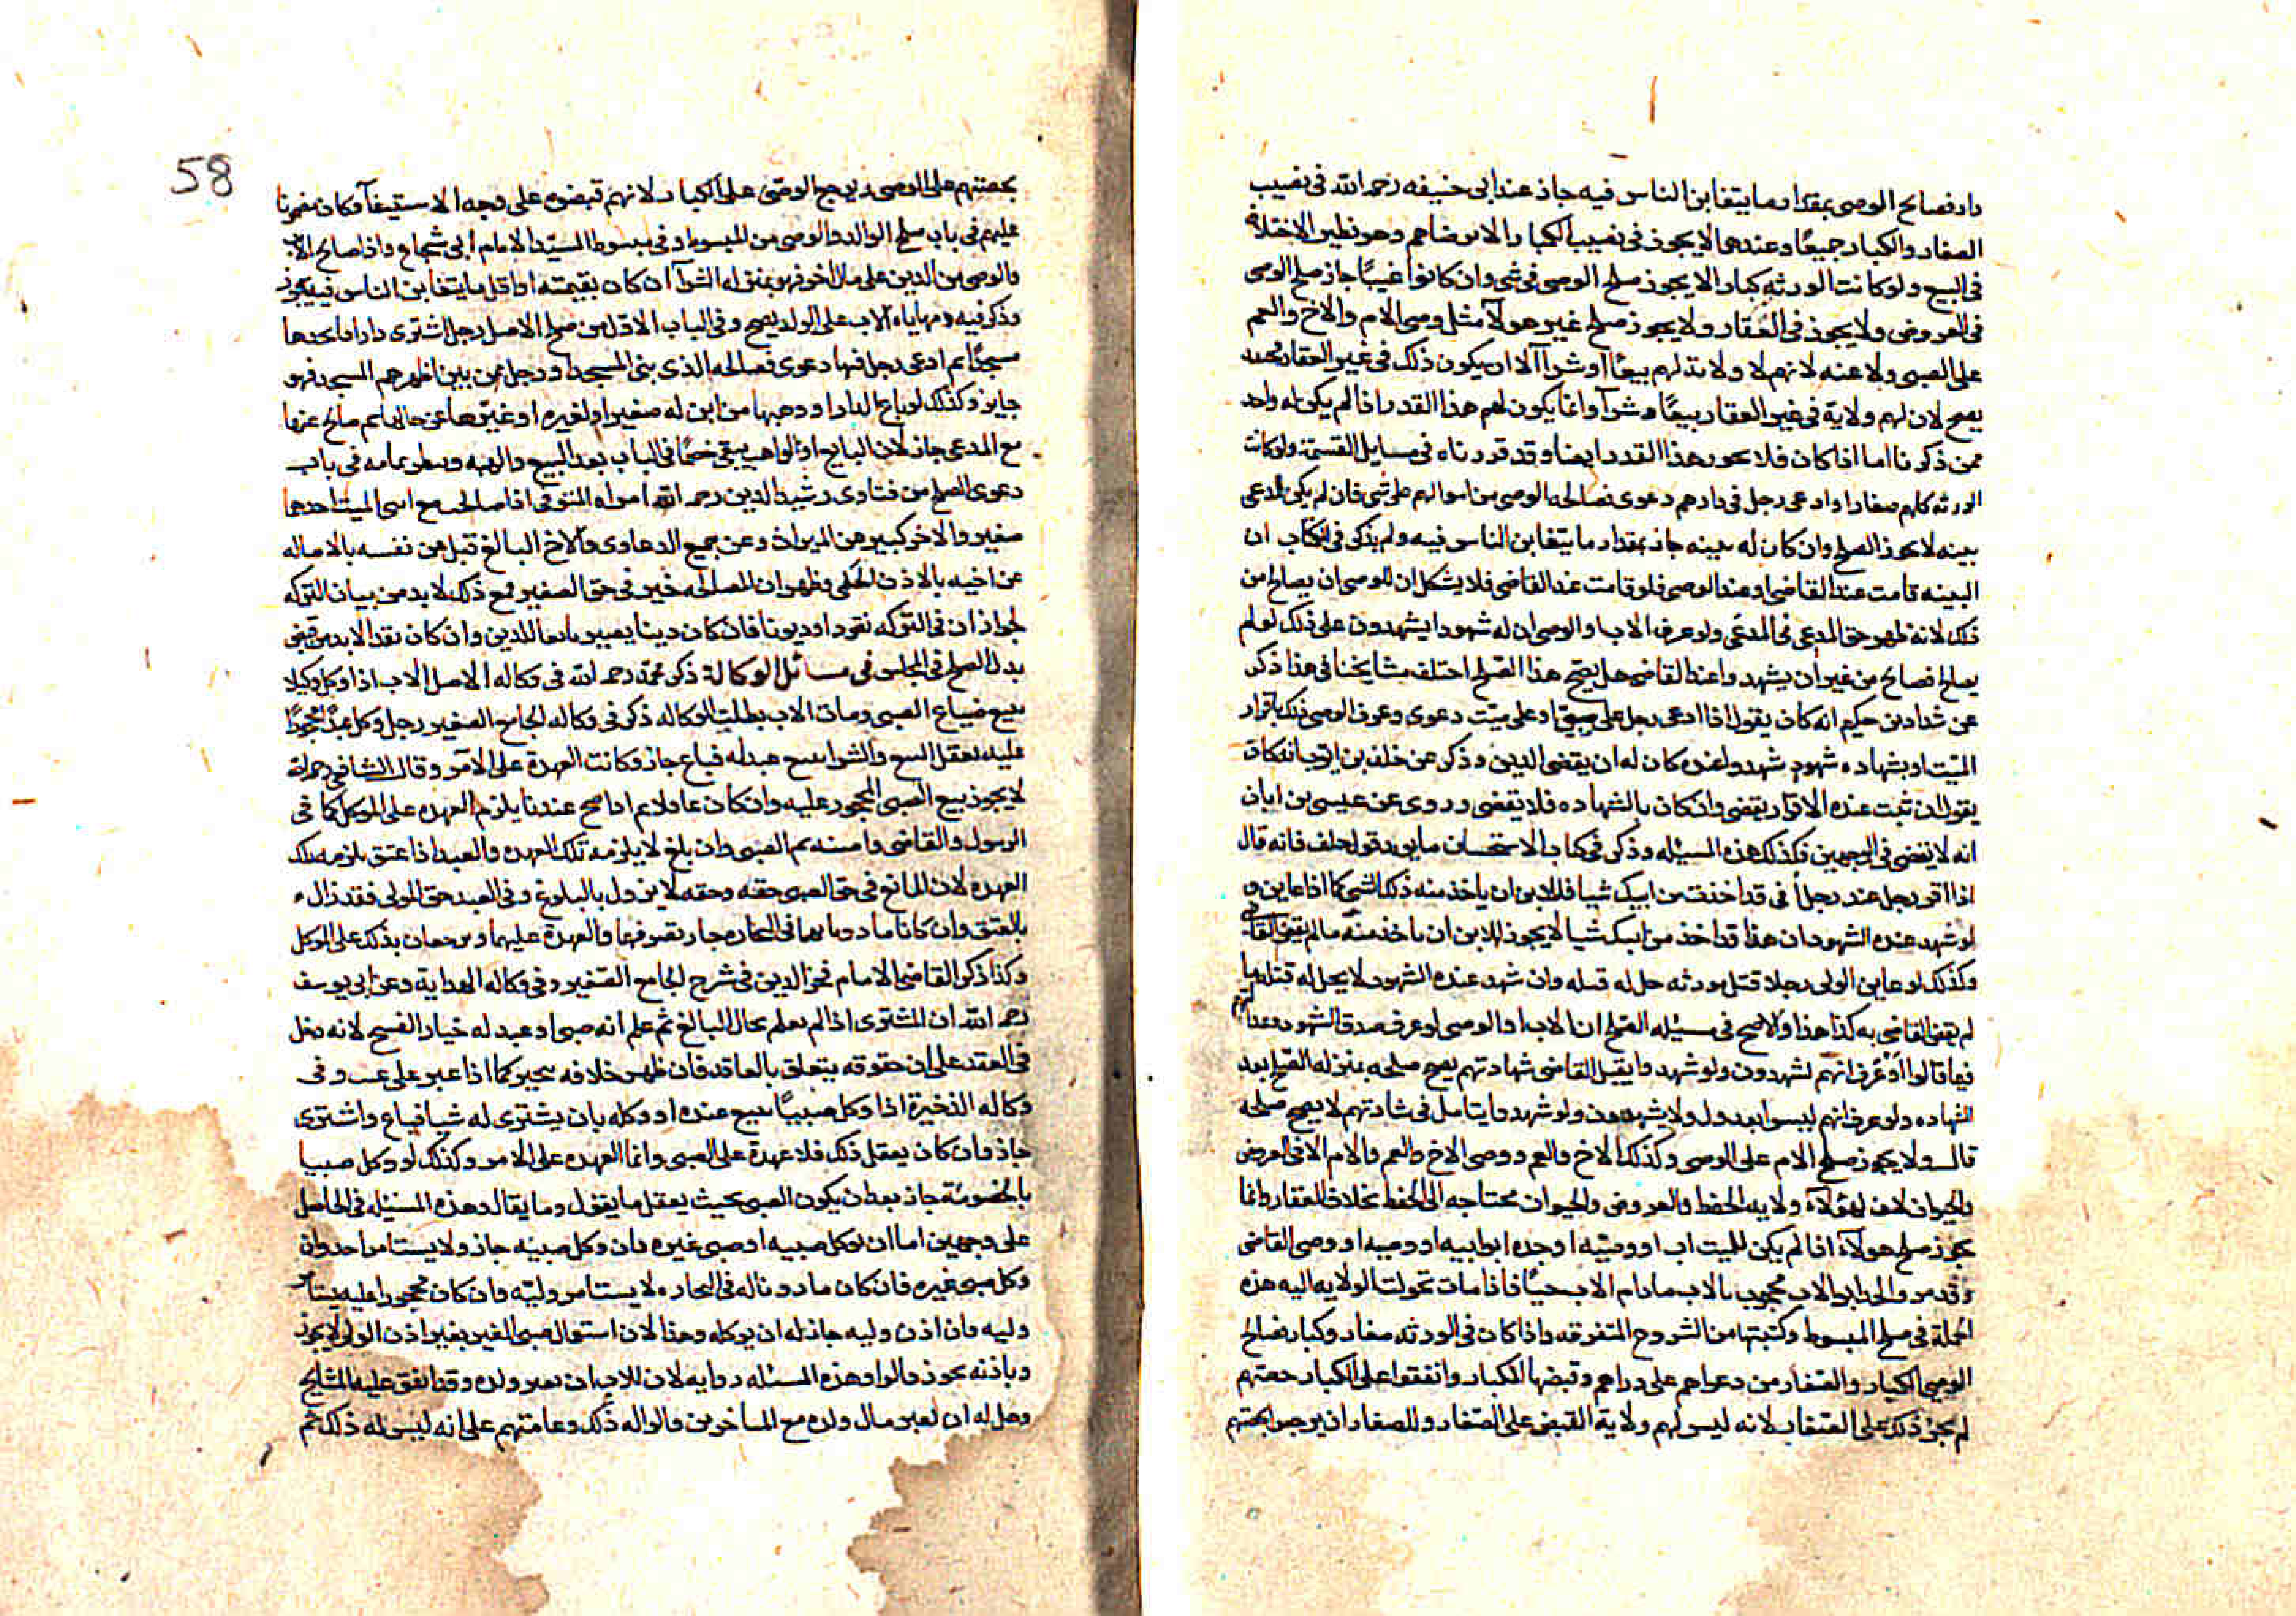 دار فصالح الوصى بمقدار ما يتغابن الناس فيه جاز عند ابى حنيفه رحمه الله فى نصيب
الصغار والكبار جميعًا وعندهما لا يجوز فى نصيب الكبار الا برضاهم وهو نظير الاختلاف
فى البيع ولو كانت الورثه كبارا لا يجوز صلح الوصى فى شى وان كانوا غيبًا جاز صلح الوصى
فى العروض ولا يجوز فى العقار ولا يجوز صلح غير هولآ مثل وصى الام والاخ والعم
على الصبى ولا عنه لانهم لا ولاية لهم بيعًا او شرآ الا ان يكون ذلك فى غير العقار
يصح لان لهم ولاية فى غير العقار بيعًا وشرآ وانما يكون لهم هذا القدر اذا لم يكن له واحد
ممن ذكرنا اما اذا كان فلا يجوز هذا القدر ايضا وقد قررناه فى مسايل القسمة ولو كانت
الورثه كلهم صغارا وادعى رجل فى دارهم دعوى فصالحه الوصى من اموالهم على شى فان لم يكن للمدعى
بينه لا يجوز الصلح وان كان له بينه جاز بمقدار ما يتغابن الناس فيه ولم يذكر فى الكتاب ان
البينه قامت عند القاضى او عند الوصى فلو قامت عند القاضى فلا يشكل ان للوصى ان يصالح من
ذلك لانه ظهر حق المدعى فى المدعى ولو عرف الاب او الوصى ان له شهودا يشهدون على ذلك لو لم
يصالح فصالح من غير ان يشهدوا عند القاضى هل يصح هذا الصلح اختلف مشايخنا فى هذا ذكر
عن شداد بن حكيم انه كان يقول اذا ادعى رجل على صبى او على ميت دعوى وعرف الوصى ذلك باقرار
الميت او بشهاده شهود شهدوا عنده كان له ان يقضى الدين وذكر عن خلف بن ايوب انه كان
يقول ان ثبت عنده الاقرار يقضى وان كان بالشهاده فلا يقضى وروى عن عيسى بن ابان
انه لا يقضى فى الوجهين فكذلك هذه المسئله وذكر فى كتاب الاستحسان ما يويد قول خلف فانه قال
اذا اقر رجل عند رجل انى قد اخذت من ابيك شيا فللابن ان ياخذ منه ذلك الشى كما اذا عاين و
لو شهد عنده الشهود ان هذا قد اخذ من ابيك شيا لا يجوز للابن ان ياخذ منه ما لم يقض القاضى
وكذلك لو عاين الولى رجلا قتل مورثه حل له قتله وان شهد عنده الشهود لا يحل له قتله ما
لم يقض القاضى به كذا هذا والاصح فى مسئله الصلح ان الاب او الوصى لو عرف صدق الشهود
فيما قالوا او عرف انهم يشهدون ولو شهدوا يقبل القاضى شهادتهم يصح صلحه بمنزله الصلح بعد
الشهاده ولو عرف انهم ليسوا بعدول ولا يشهدون ولو شهدوا يتامل فى شهادتهم لا يصح صلحه
قال ولا يجوز صلح الام على الوصى وكذلك الاخ والعم ووصى الاخ والعم والام الا فى العروض
والحيوان لان لهؤلآء ولاية الحفظ والعروض والحيوان محتاجه الى الحفظ بخلاف العقار وانما
يجوز صلح هولآء اذا لم يكن للميت اب او وصيه او جده ابو ابيه او وصيه او وصى القاضى
وقد مر والجد ابو الاب محجوب بالاب مادام الاب حيًا فاذا مات تحولت الولايه اليه هذه
الجملة فى صلح المبسوط وكتبتها من الشروح المتفرقه واذا كان فى الورثه صغار وكبار فصالح
الوصى الكبار والصغار من دعواهم على دراهم وقبضها الكبار وانفقوا على الكبار حصتهم
لم يجز ذلك على الصغار لانه ليس لهم ولاية القبض على الصغار وللصغار ان يرجعوا بحصتهم
58
بحصتهم على الوصى ويرجع الوصى على الكبار لانهم قبضوه على وجه الاستيفآ وكان مضمونا
عليهم فى باب صلح الوالد والوصى من المبسوط وفى مبسوط السيد الامام ابى شجاع واذا صالح الاب
والوصى من الدين على مال اخر فهو بمنزله الشرآ ان كان بقيمته او اقل ما يتغابن الناس فيه يجوز
وذكر فيه ومهاياه الاب على الولد يصح وفى الباب الاول من صلح الاصل رجل اشترى دارا فاتخذها
مسجدًا ثم ادعى رجل فيها دعوى فصالحه الذى بنى المسجد او رجل ممن بين اظهرهم المسجد فهو
جايز وكذلك لو باع الدار او وهبها من ابن له صغير او لغيره او غيرها عن حالها ثم صالح عنها
مع المدعى جاز لان البايع او الواهب يبقى خصمًا فى الباب بعد البيع والهبه وسطر تمامه فى باب
دعوى الصلح من فتاوى رشيد الدين رحمه الله امراه المتوفى اذا صالحت مع ابنى الميت احدهما
صغير والاخر كبير من الميراث وعن جميع الدعاوى والاخ البالغ قبل من نفسه بالاصاله
عن اخيه بالاذن الحكمى وظهر ان المصالحه خير فى حق الصغير فمع ذلك لا بد من بيان التركه
لجواز ان فى التركه نقودا وديونا فان كان دينا يصير بايعا للدين وان كان نقدا لا بد من قبض
بدل الصلح فى المجلس فى مسائل الوكالة ذكر محمد رحمه الله فى وكاله الاصل الاب اذا وكل وكيلا
ببيع ضياع الصبى ومات الاب بطلت الوكاله ذكر فى وكاله الجامع الصغير رجل وكل عبدًا محجورًا
عليه يعقل البيع والشرا ببيع عبد له فباع جاز وكانت العهدة على الآمر وقال الشافعى رحمه الله
لا يجوز بيع الصبى المحجور عليه وان كان عاقلا ثم اذا صح عندنا يلزم العهده على الموكل كما فى
الرسول والقاضى وامينه ثم الصبى وان بلغ لا يلزمه تلك العهده والعبد اذا عتق يلزمه تلك
العهده لان المانع فى حق الصبى حقه وحقه لا يزول بالبلوغ وفى العبد حق المولى فقد زال
بالعتق وان كانا ماذونا لهما فى التجاره جاز تصرفهما والعهدة عليهما ويرجعان بذلك على الموكل
وكذا ذكر القاضى الامام فخر الدين فى شرح الجامع الصغير وفى وكاله الهداية وعن ابى يوسف
رحمه الله ان المشترى اذا لم يعلم بحال البالغ ثم علم انه صبى او عبد له خيار الفسخ لانه دخل
فى العقد على ان حقوقه يتعلق بالعاقد فان ظهر خلافه يتخير كما اذا عبر على عيب وفى
وكاله الذخيرة اذا وكل صبيًا ببيع عنده او وكله بان يشترى له شيا فباع واشترى
جاز وان كان يعقل ذلك فلا عهدة على الصبى وانما العهده على الامر وكذلك لو وكل صبيا
بالخصومة جاز بعد ان يكون الصبى بحيث يعقل ما يقول وما يقال وهذه المسئله فى الحاصل
على وجهين اما ان يوكل صبيه او صبى غيره فان وكل صبيه جاز ولا يستامر احد وان
وكل صبى غيره فان كان ماذونا له فى التجاره لا يستامر وليه وان كان محجورا عليه يستامر
وليه فان اذن وليه جاز له ان يوكله وهذا لان استعمال صبى الغير بغير اذن الولى لا يجوز
وباذنه يجوز قالوا وهذه المسئله روايه لان للاب ان يعير ولده وقد اتفق عليه المشايخ
وهل له ان يعير مال ولده مع المتاخرين قالوا له ذلك وعامتهم على انه ليس له ذلك ثم